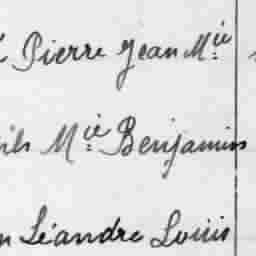 Pierre Jean Mie
fils Mie Benjamin
Léandre Louis